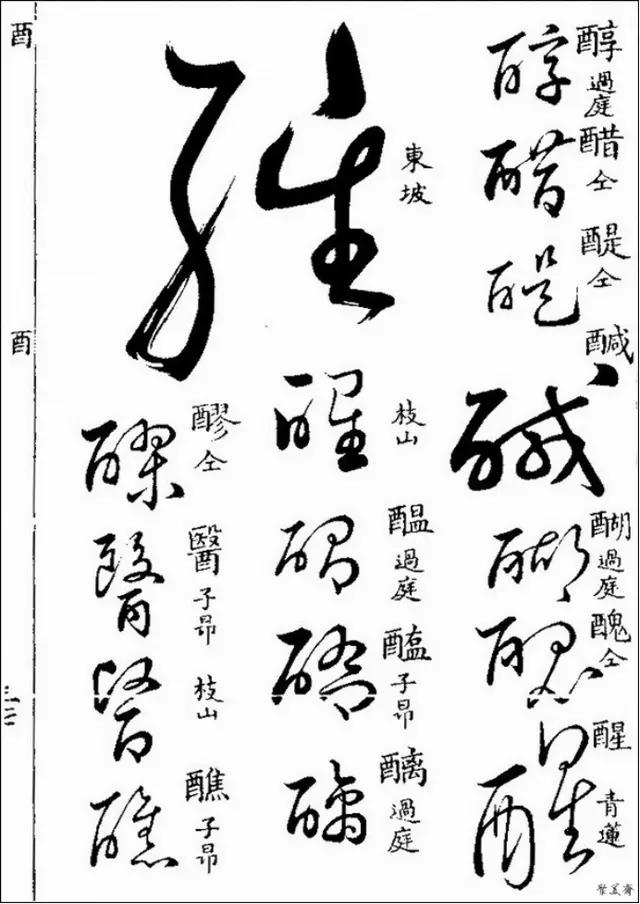 醇 過庭
醋 仝
醍 仝
醎
醐 過庭
醜 仝
醒 青蓮
東坡
枝山
醖 過庭
醯 子昂
醨 過庭
醪 仝
醫 子昂
枝山
醮 子昂
酉
酉